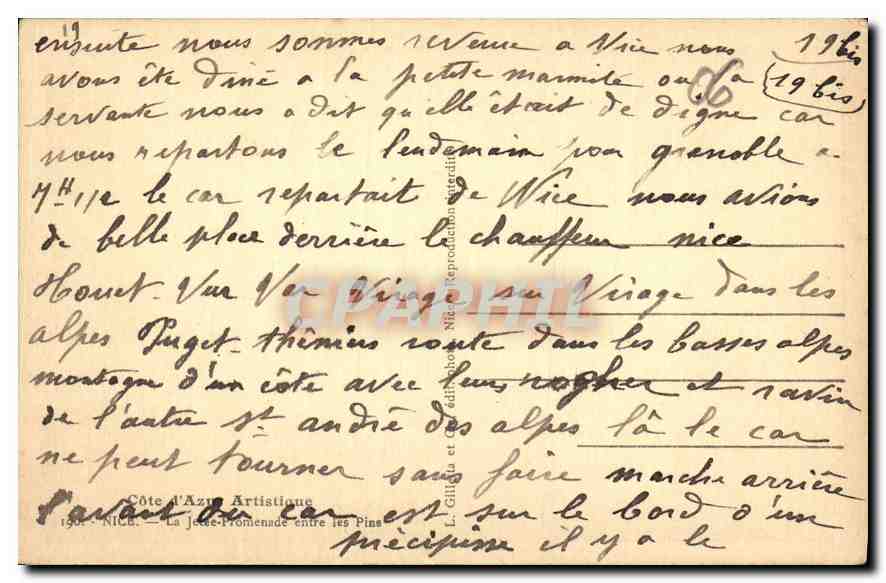 19
ensuite nous sommes revenue a Nice nous 19 bis
avons été diné a la petite marmite ou la 19 bis
servante nous a dit qu'elle était de digne car
nous repartons le lendemain pour grenoble a
7H 1/2 le car repartait de Nice nous avions
de belle place derrière le chauffeur nice
Touet Sur Var Virage sur Virage dans les
alpes Puget thêniers route dans les basses alpes
montagne d'un côte avec leurs rogher et ravin
de l'autre St andré des alpes lâ le car
ne peut tourner sans faire marche arrière
l'avant du car est sur le bord d'un
précipisse il y a le
Côte d'Azur Artistique
NICE. — La Jetée-Promenade entre les Pins
L. Gilletta et Cie, édit. phot., Nice. Reproduction interdite
CPAPHIL